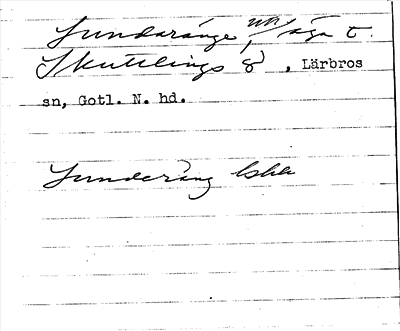 Sunderänge, äga t.
Skuttlings 8, Lärbros
sn, Gotl. N. hd.
Sunderäng